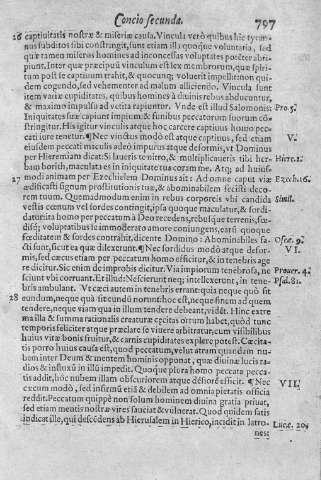 Concio secunda. 797
26 captiuitatis nostræ & miseriæ causa. Vincula verò quibus hic tyran-
nus subditos sibi constringit, sunt etiam illa quoque voluntaria, sed
quæ tamen miseros homines ad inconcessas voluptates potẽter abri-
piunt. Inter quæ præcipuũ vinculum est lex membrorum, quæ spiri-
tum post se captiuum trahit, & quocunq; voluerit impellit non qui-
dem cogendo, sed vehementer ad malum alliciendo. Vincula sunt
item variæ cupiditates, quibus homines à dæmonibus abducuntur,
& maximo impulsu ad vetita rapiuntur. Vnde est illud Salomonis: Pro. 5.
Iniquitates suæ capiunt impium, & funibus peccatorum suorum cõ-
stringitur. His igitur vinculis atque hoc carcere captiuus homo pec-
cati iure tenetur. ¶ Nec vinctus modò est atque captiuus, sed etiam V.
eiusdem peccati maculis adeò impurus atque deformis, vt Dominus
per Hieremiam dicat: Si laueris te nitro, & multiplicaueris tibi her- Hiere. 2.
bam borith, maculata es in iniquitate tua coram me. Atq; ad huius-
27 modi animam per Ezechielem Dominus ait: Ad omne caput viæ Ezech. 16.
ædificasti signum prostitutionis tuæ, & abominabilem fecisti deco-
rem tuum. Quemadmodum enim in rebus corporeis vbi candida Simil.
vestis cœnum vel sordes contingit, ipsa quoque maculatur, & fordi-
daturita homo per peccatum à Deo recedens, rebusque terrenis, suis-
disq; voluptatibus immoderato amore coniungens, earũ quoque
fœditatem & sordes contrahit, dicente Domino: Abominabiles fa- Oseæ. 9.
cti sunt, sicut ea quæ dilexerunt. ¶ Nec sordidus modò atque defor- VI.
mis, sed cæcus etiam per peccatum homo efficitur, & in tenebris age
re dicitur. Sic enim de improbis dicitur. Via impiorum tenebrosa, ne Prouer. 4.
sciunt vbi corruant. Et illud: Nescierunt neq; intellexerunt, in tene- Psal. 81.
bris ambulant. Vt cæci autem in tenebris errant: quia neque quò sit
28 eundum, neque quà sit eundũ norunt: hoc est, neque finem ad quem
tendere, neque viam qua in illum tendere debeant, vidẽt. Hinc extre
ma illa & summa rationalis creaturæ cæcitas oritur
temporis feliciter atque præclare se viuere arbitratur, cum visibilibus
huius vitæ bonis fruitur, & carnis cupiditates explere potest. Cæcita-
tis porro huius causa est, quod peccatum, velut atram quandam nu-
bem inter Deum & mentem hominis opponat, quæ diuinæ lucis ra-
dios & influxũ in illũ impedit. Quoque plura homo peccata pecca-
tis addit, hòc nubem illam obscuriorem atque dẽsiorẽ efficit. ¶ Nec VII.
cæcum modò, sed infirmũ etiã & debilem ad omnia pietatis officia
reddit. Peccatum quippè non solum hominem diuina gratia priuat,
sed etiam mentis nostræ vires sauciat & vulnerat. Quod quidem satis
indicat ille, qui descẽdens ab Hierusalem in Hierico, incidit in latro- Lucæ. 10.
nes: